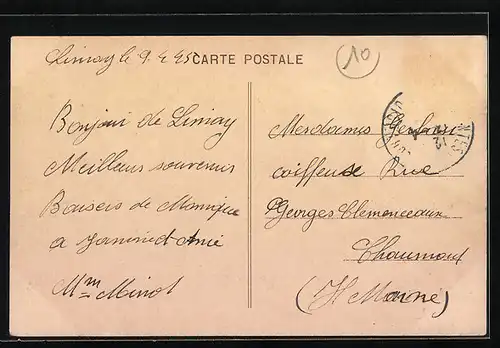 Limay le 9.4.45
CARTE POSTALE
10
Bonjour de Limay
Meilleurs souvenirs
Baisers de Monique
a
Mme Minot
Mesdames
coiffeuse Rue
Georges Clemenceaux
Chaumont
(Hte Marne)